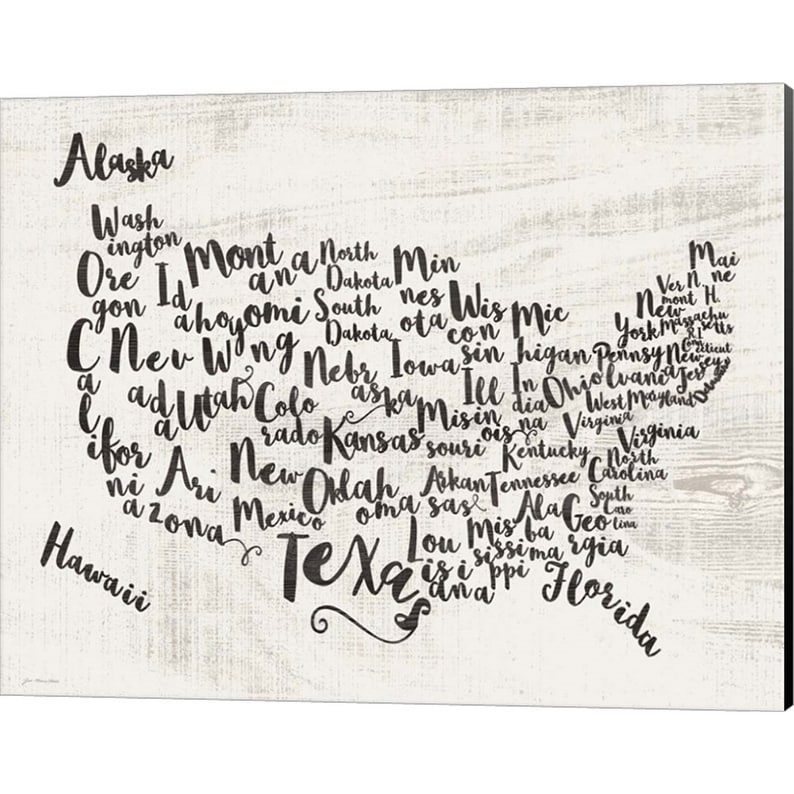 Alaska
Wash
ington
Ore
gon
C
a
l
i
for
ni
a
Id
aho
Mont
ana
Nev
ad
a
Wyomi
ng
Utah
Ari
zona
North
Dakota
South
Dakota
Nebr
aska
Colo
rado
Kansas
New
Mexico
Oklah
oma
Texas
Min
nes
ota
Iowa
Mis
souri
Arkan
sas
Lou
isi
ana
Wis
con
sin
Ill
in
ois
Mic
higan
In
dia
na
Ohio
Kentucky
Tennessee
Mis
sissi
ppi
Ala
ba
ma
Geo
rgia
Florida
Mai
ne
Ver
mont
N.
H.
New
York
Massachu
setts
R.I.
Conn
ecticut
Pennsy
lvania
New
Jer
sey
Delaware
Maryland
West
Virginia
Virginia
North
Carolina
South
Caro
lina
Hawaii